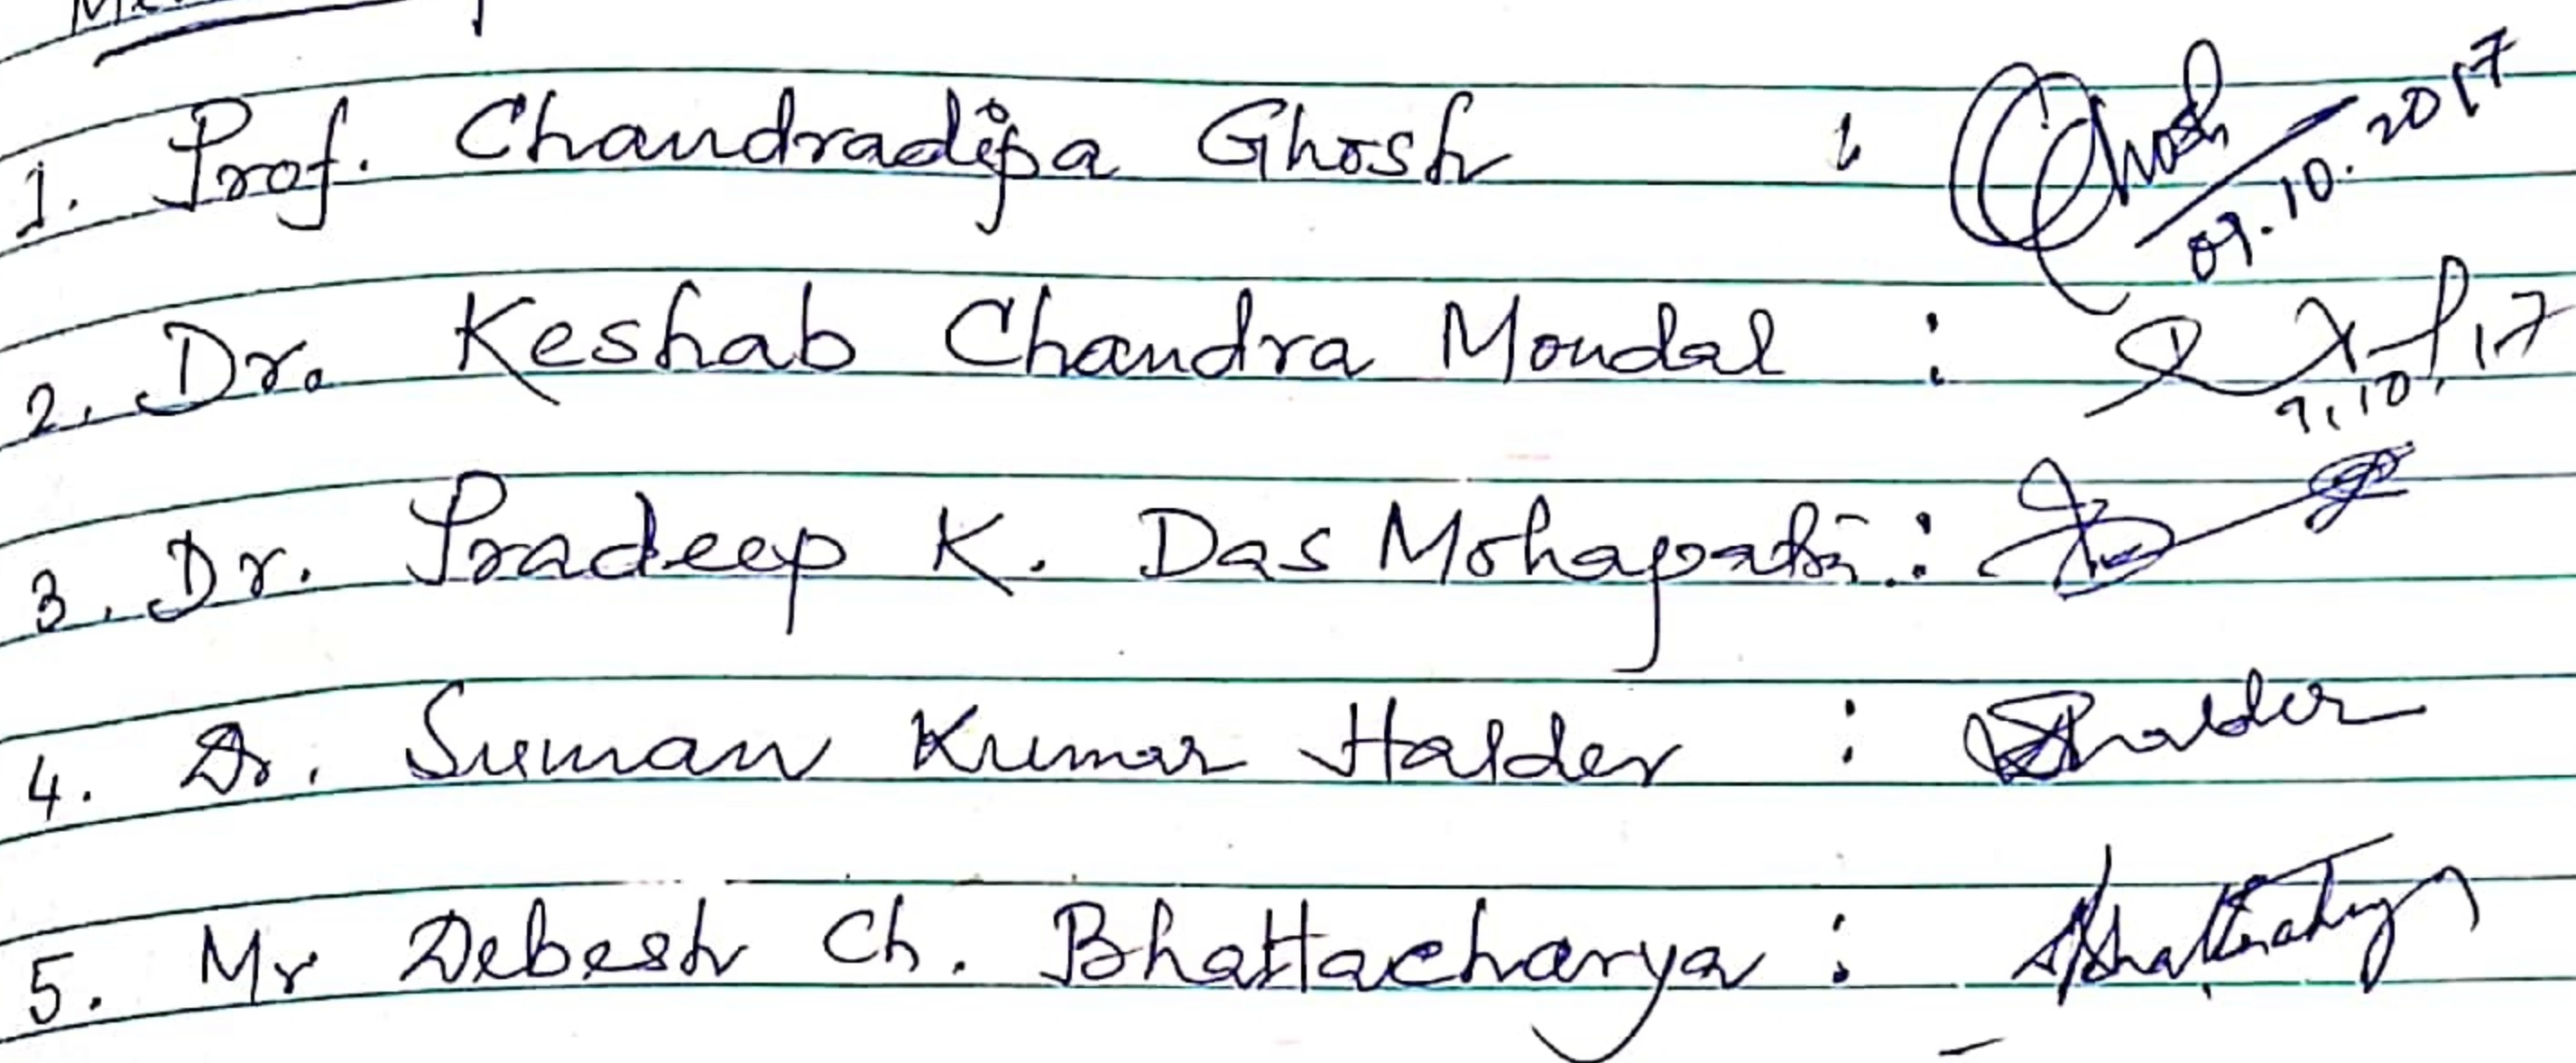 1. Prof. Chandradipa Ghosh : Ghosh 09.10.2017
2. Dr. Keshab Chandra Mondal : 9.10.17
3. Dr. Pradeep K. Das Mohapatra :
4. Dr. Suman Kumar Halder : SHalder
5. Mr Debesh Ch. Bhattacharya : Bhattacharya